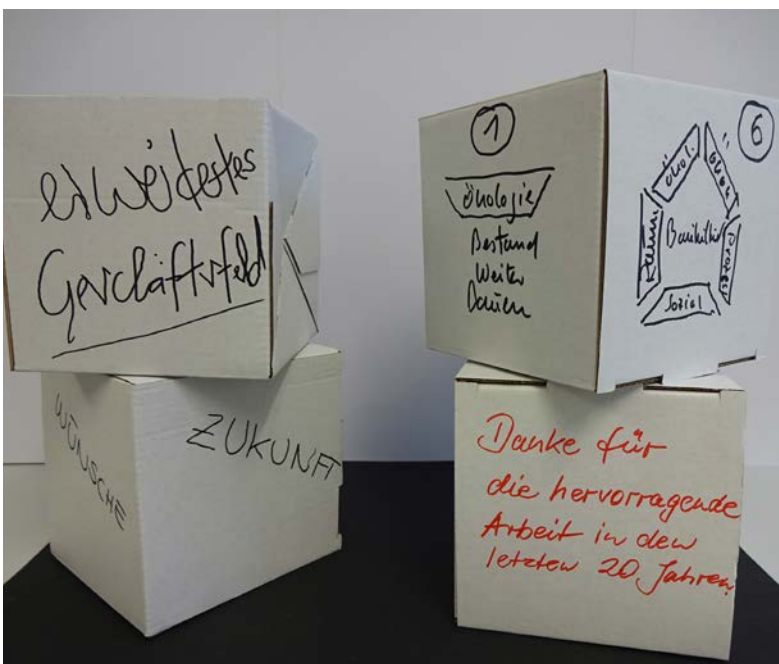 erweitertes
Geschäftsfeld
WÜNSCHE
ZUKUNFT
1
Ökologie
Bestand
Weiter
Bauen
6
ökol.
ökon.
Raum
Baukultur
Sozial
Danke für
die hervorragende
Arbeit in den
letzten 20 Jahren